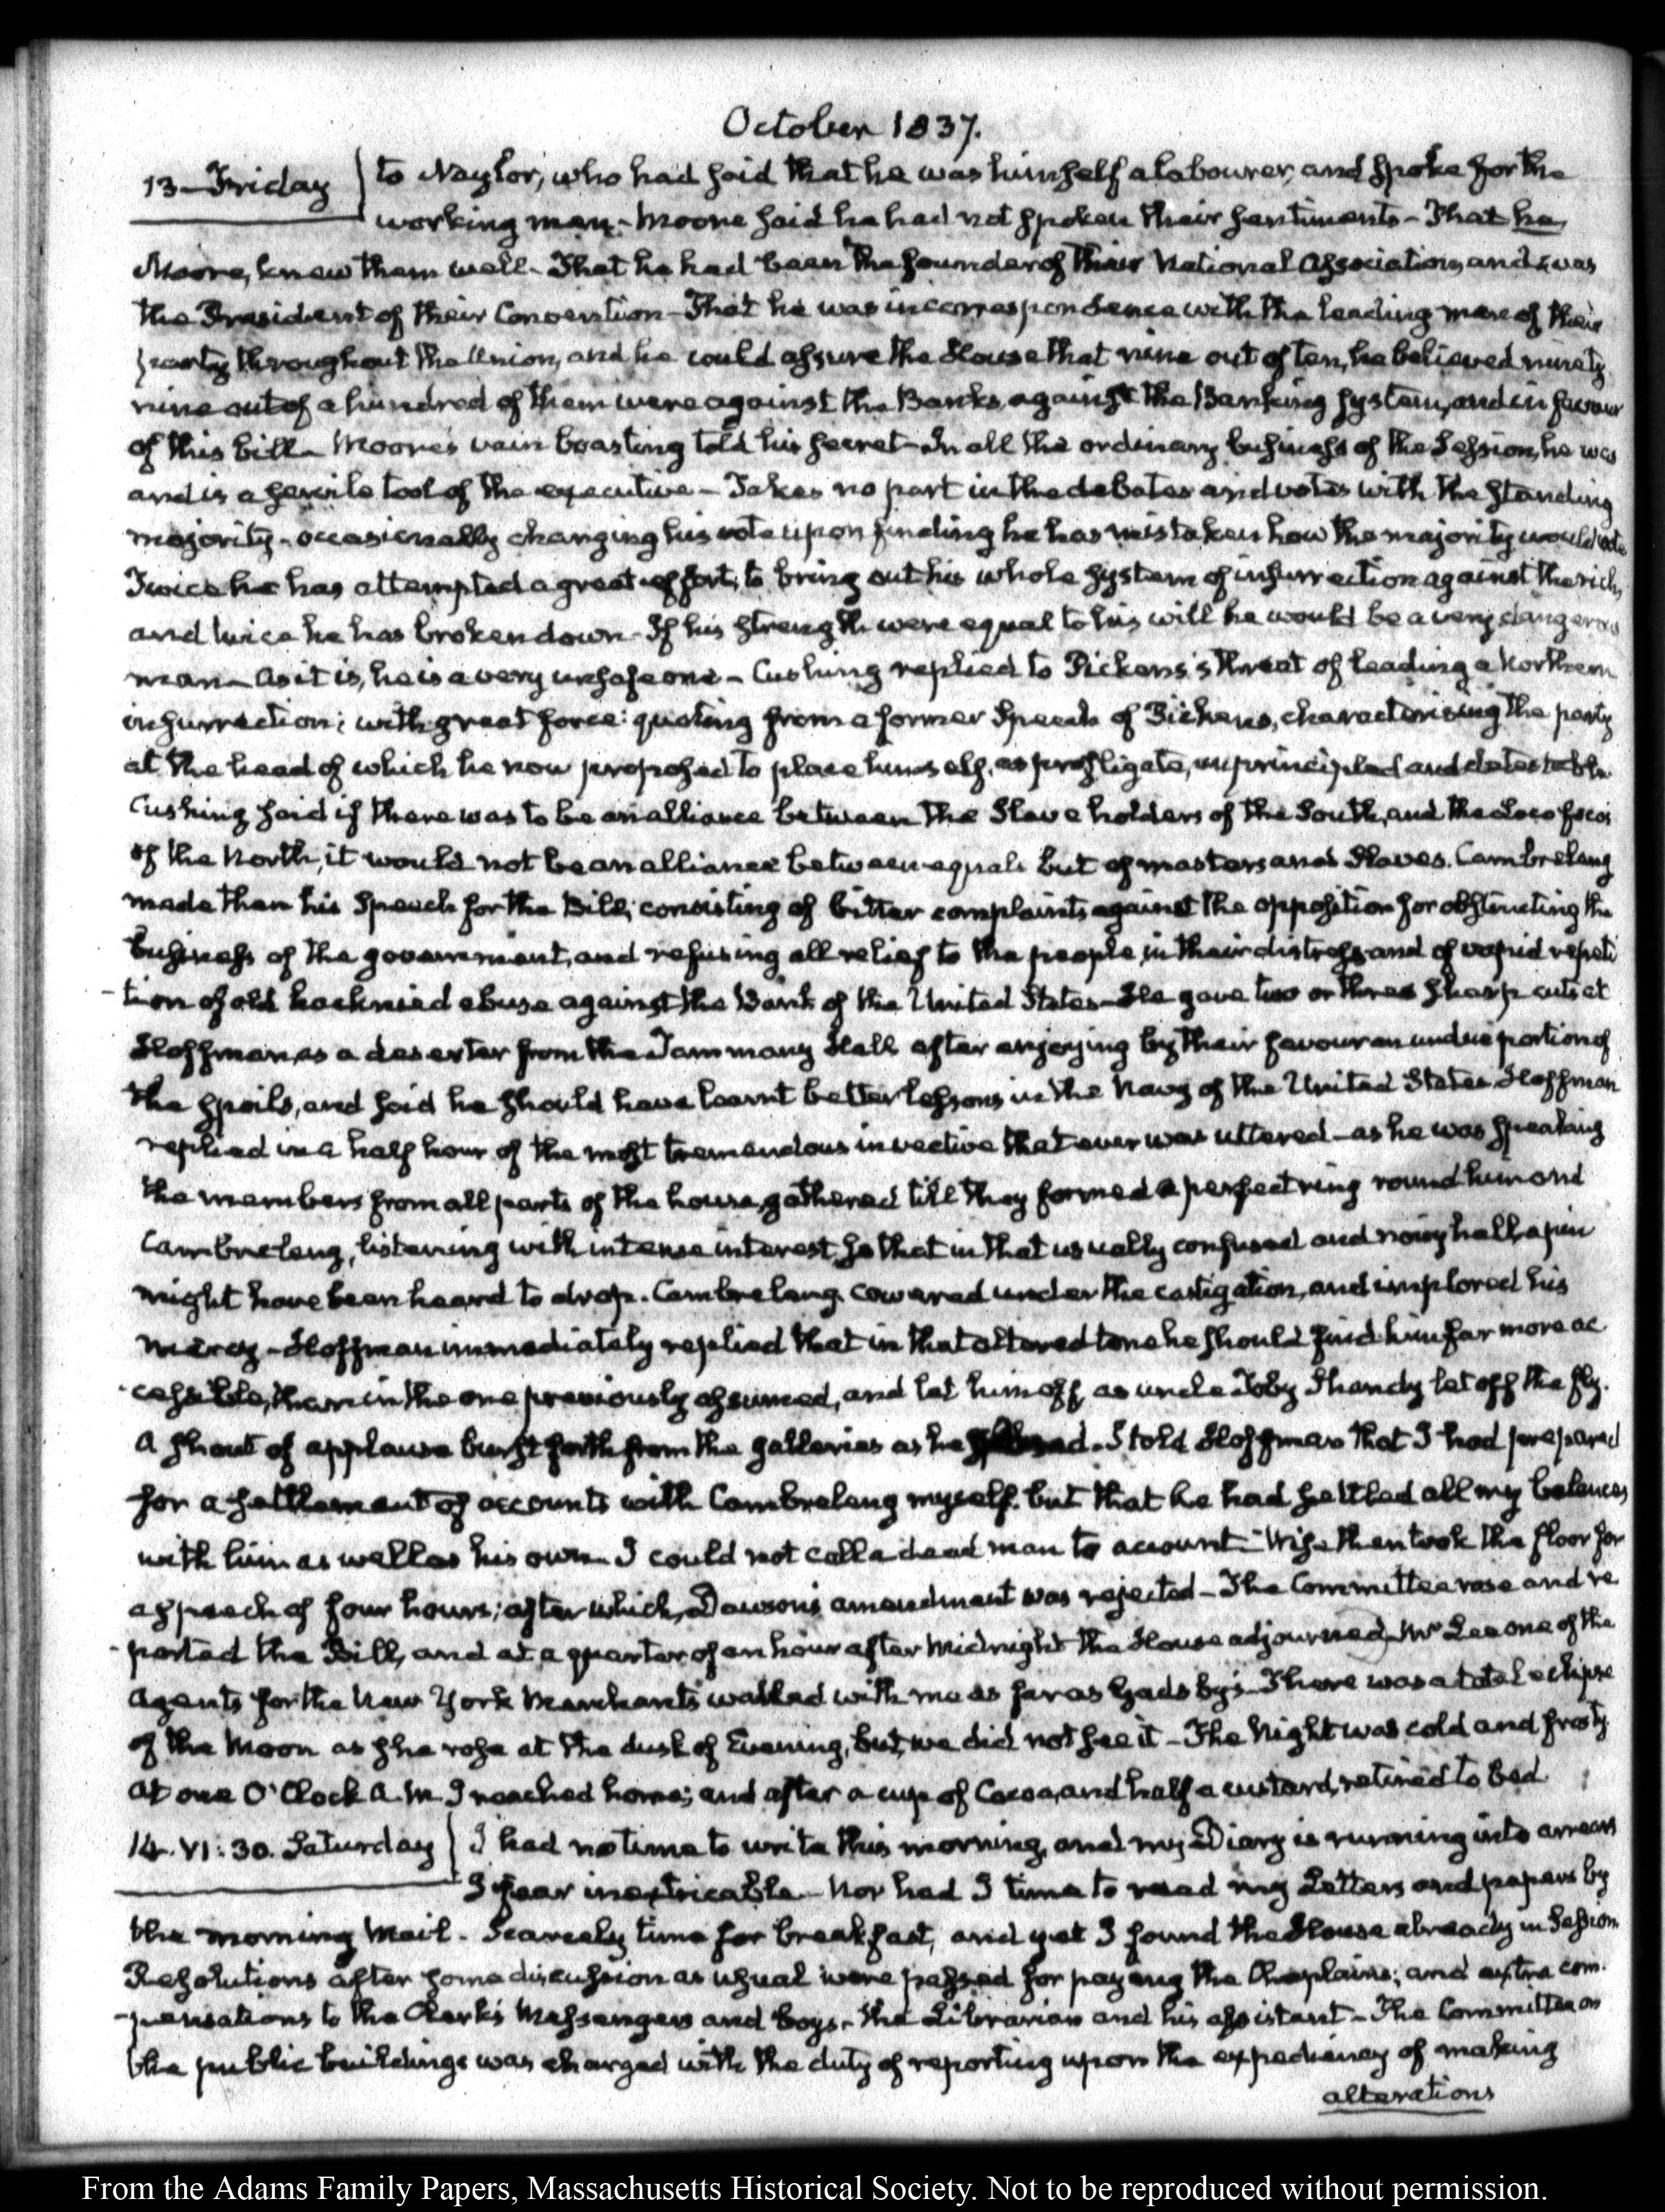 October 1837.
13—Friday
to Naylor, who had said that he was himself a labourer, and spoke for the
working man.—Moore said he had not spoken their sentiments—That he,
Moore, knew them well—That he had been the founder of their National Association, and was
the President of their Convention—That he was in correspondence with the leading men of their
party throughout the Union, and he could assure the House that nine out of ten, he believed ninety
nine out of a hundred of them were against the Banks, against the Banking System, and in favour
of this bill—Moore's vain boasting told his secret—In all the ordinary business of the Session, he was
and is a servile tool of the executive—Takes no part in the debates and votes with the standing
majority—occasionally changing his vote upon finding he has mistaken how the majority would vote
Twice he has attempted a great effort, to bring out his whole system of insurrection against the rich,
and twice he has broken down—If his strength were equal to his will he would be a very dangerous
man—As it is, he is a very unsafe one—Cushing replied to Pickens's threat of leading a Northern
insurrection; with great force: quoting from a former Speech of Pickens, characterising the party
at the head of which he now proposed to place himself, as profligate, unprincipled and detestable.
Cushing said if there was to be an alliance between the Slave holders of the South, and the Loco focos
of the North, it would not be an alliance between equals but of masters and Slaves. Cambreleng
made then his Speech for the Bill; consisting of bitter complaints against the opposition for obstructing the
business of the government, and refusing all relief to the people in their distress and of vapid repeti
-tion of old hacknied abuse against the Bank of the United States—He gave two or three sharp cuts at
Hoffman, as a deserter from the Tammany Hall after enjoying by their favour an undue portion of
the spoils, and said he should have learnt better lessons in the Navy of the United States. Hoffman
replied in a half hour of the most tremendous invective that ever was uttered—as he was speaking
the members from all parts of the house gathered till they formed a perfect ring round him and
Cambreleng, listening with intense interest, so that in that usually confused and noisy hall, a pin
might have been heard to drop. Cambreleng cowered under the castigation, and implored his
mercy—Hoffman immediately replied that in that altered tone he should find him far more ac
-cessible, than in the one previously assumed, and let him off, as uncle Toby Shandy let off the fly.
A shout of applause burst forth from the galleries as he. I told Hoffman that I had prepared
for a settlement of accounts with Cambreleng myself. but that he had settled all my balances
with him as well as his own—I could not call a dead man to account—Wise then took the floor for
a speech of four hours; after which, Dawson's amendment was rejected—The Committee rose and re
-ported the Bill, and at a quarter of an hour after Midnight the House adjourned—Mr Lee one of the
Agents for the New York Merchants walked with me as far as Gadsby's—There was a total eclipse
of the Moon as she rose at the dusk of Evening, but we did not see it—The Night was cold and frosty.
At one O'Clock A.M. I reached home; and after a cup of Cocoa, and half a custard, retired to bed
14. VI:30. Saturday
I had no time to write this morning, and my Diary is running into arrears
I fear inextricable—Nor had I time to read my Letters and papers by
the morning Mail. Scarcely time for breakfast, and yet I found the House already in Session
Resolutions after some discussion as usual were passed for paying the Chaplains; and extra com-
-pensations to the Clerks Messengers and boys—the Librarian and his assistant—The Committee on
the public buildings was charged with the duty of reporting upon the expediency of making
alterations
From the Adams Family Papers, Massachusetts Historical Society. Not to be reproduced without permission.